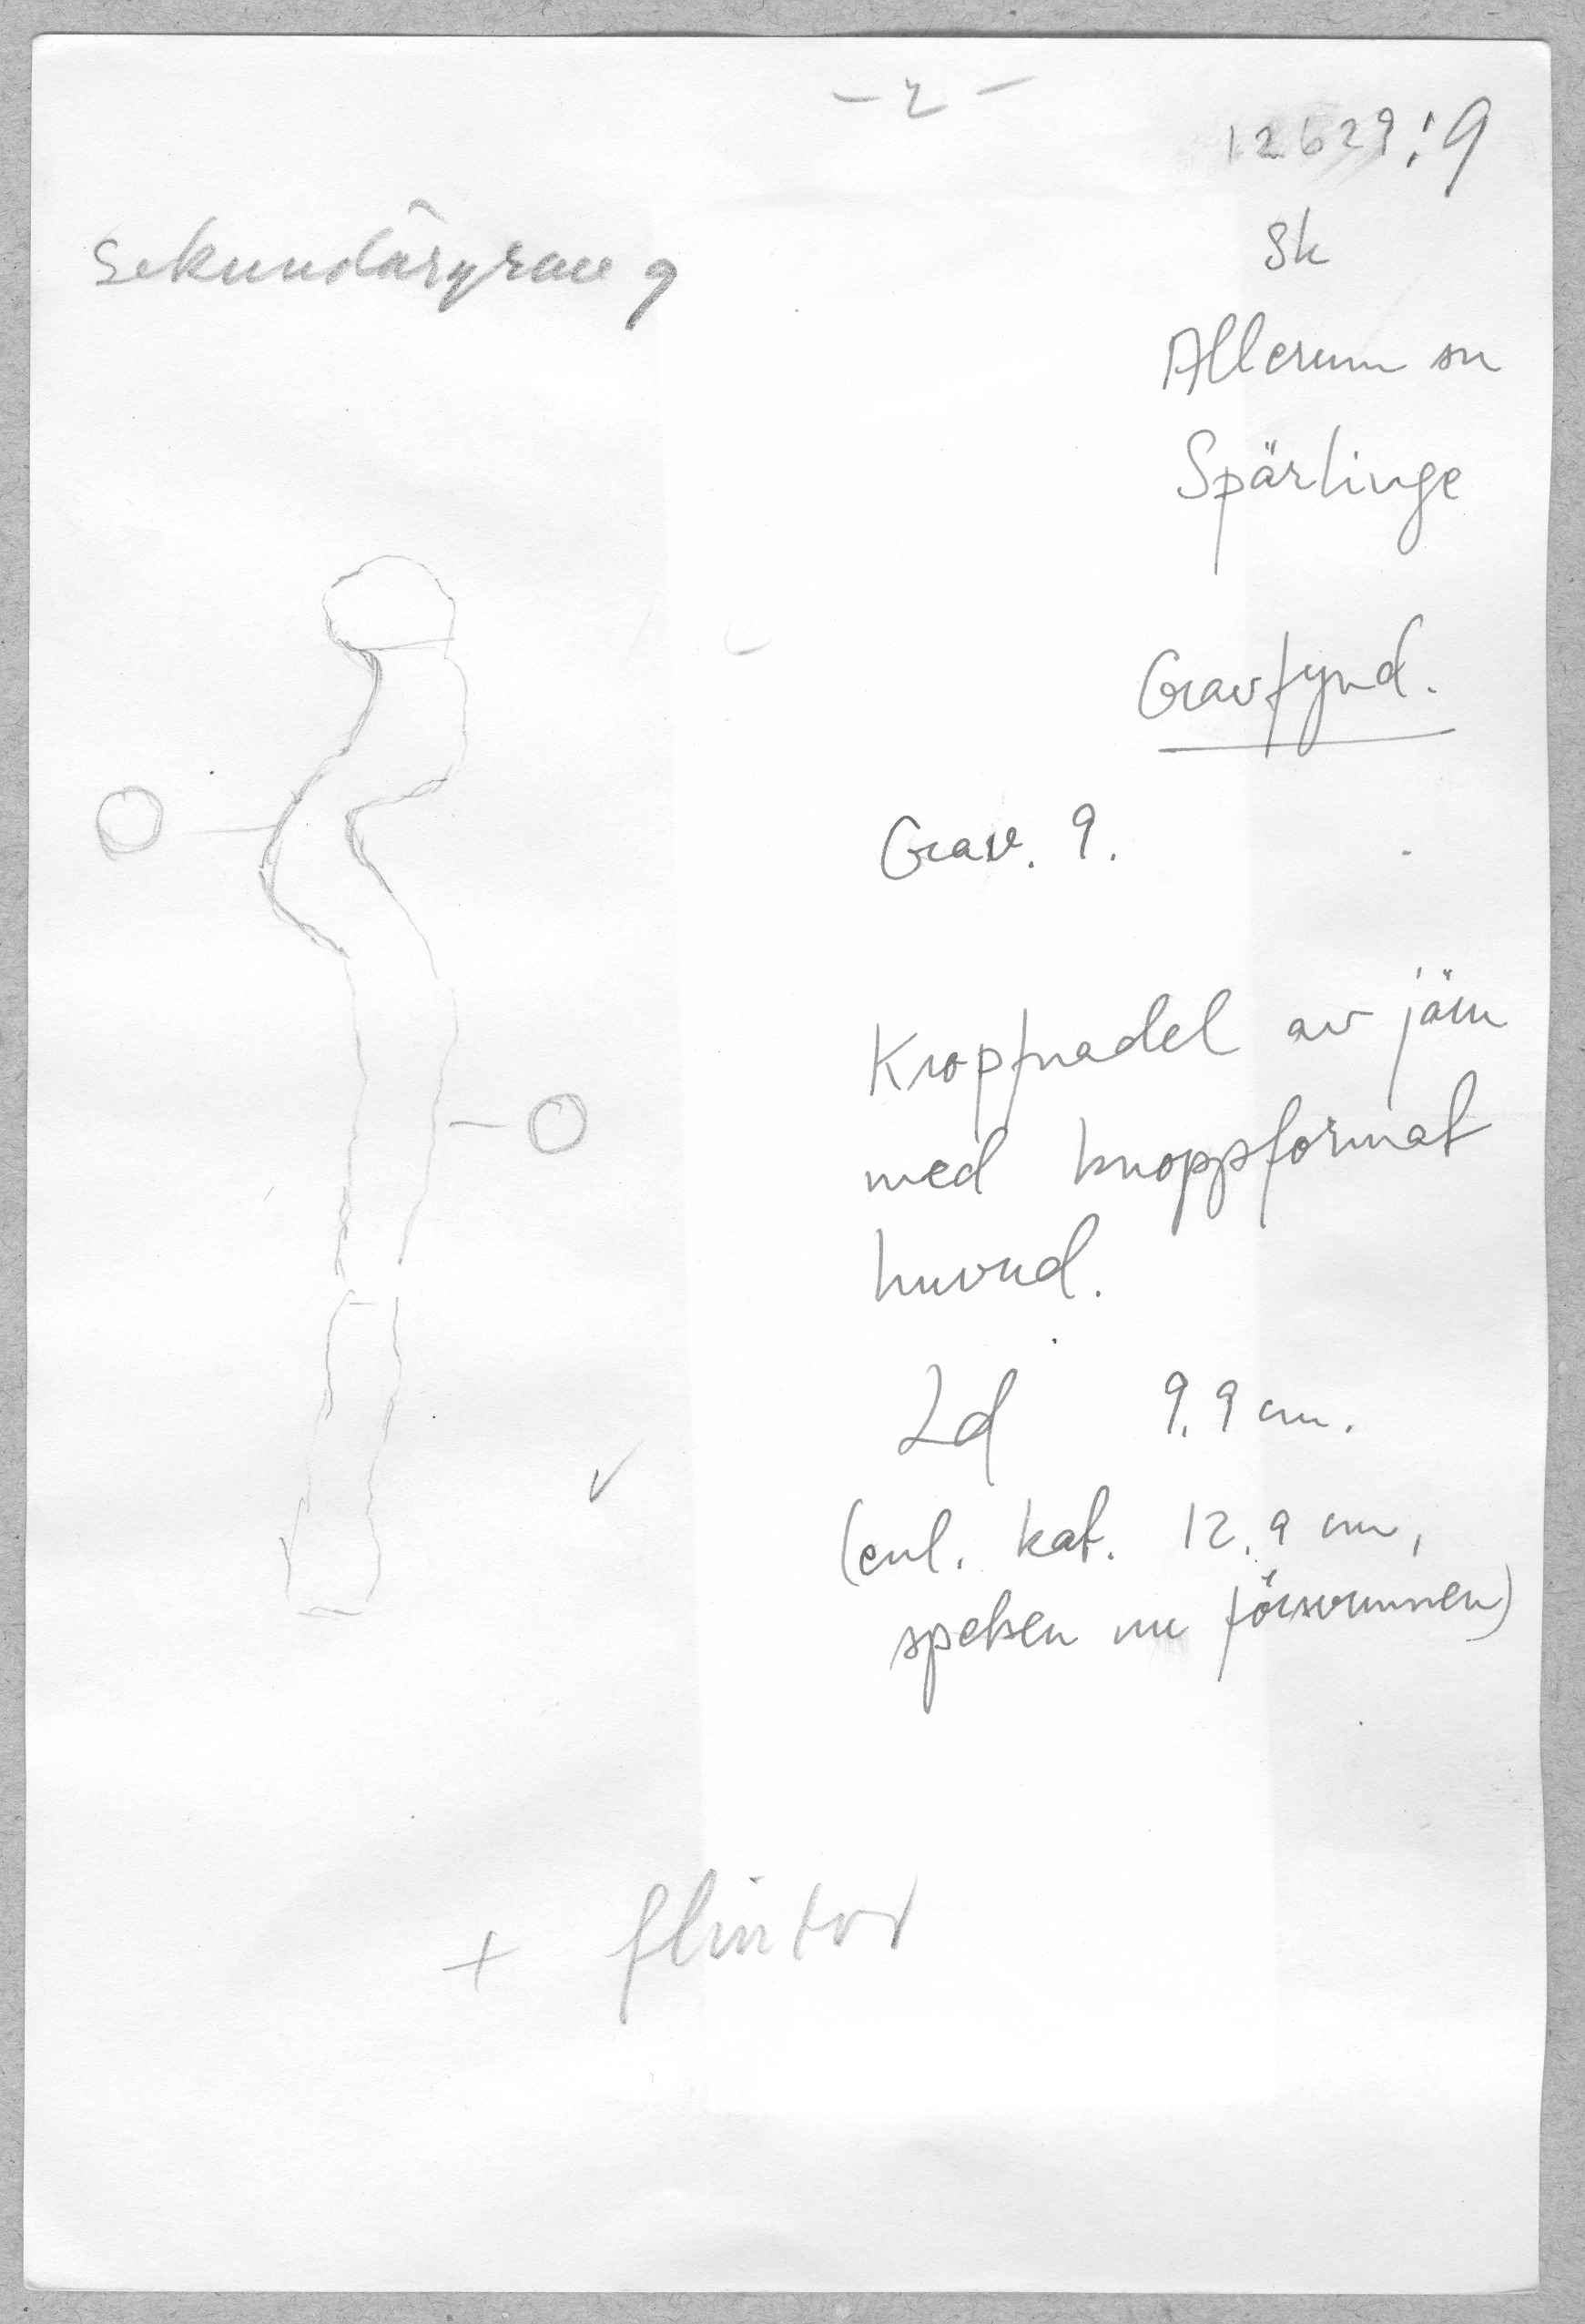 - 2 -
12629:9
Sekundärgrav 9
Sk
Allerum sn
Spärlinge
Gravfynd.
Grav. 9.
Kropfnadel av järn
med knoppformat
huvud.
Ld 9,9 cm.
(enl. kat. 12,9 cm,
spetsen nu försvunnen)
+ flintor